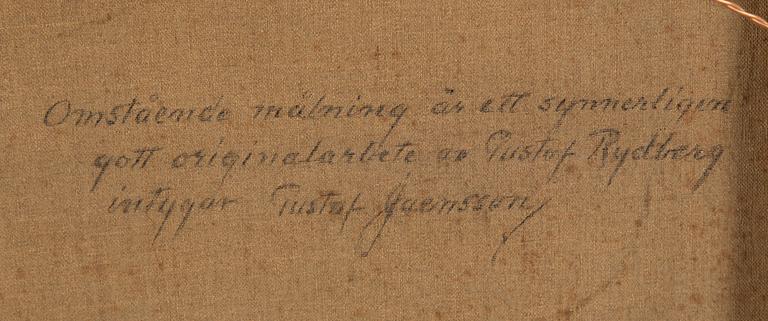 Omstående målning är ett synnerligen
gott originalarbete av Gustaf Rydberg
intygar Gustaf Jaensson